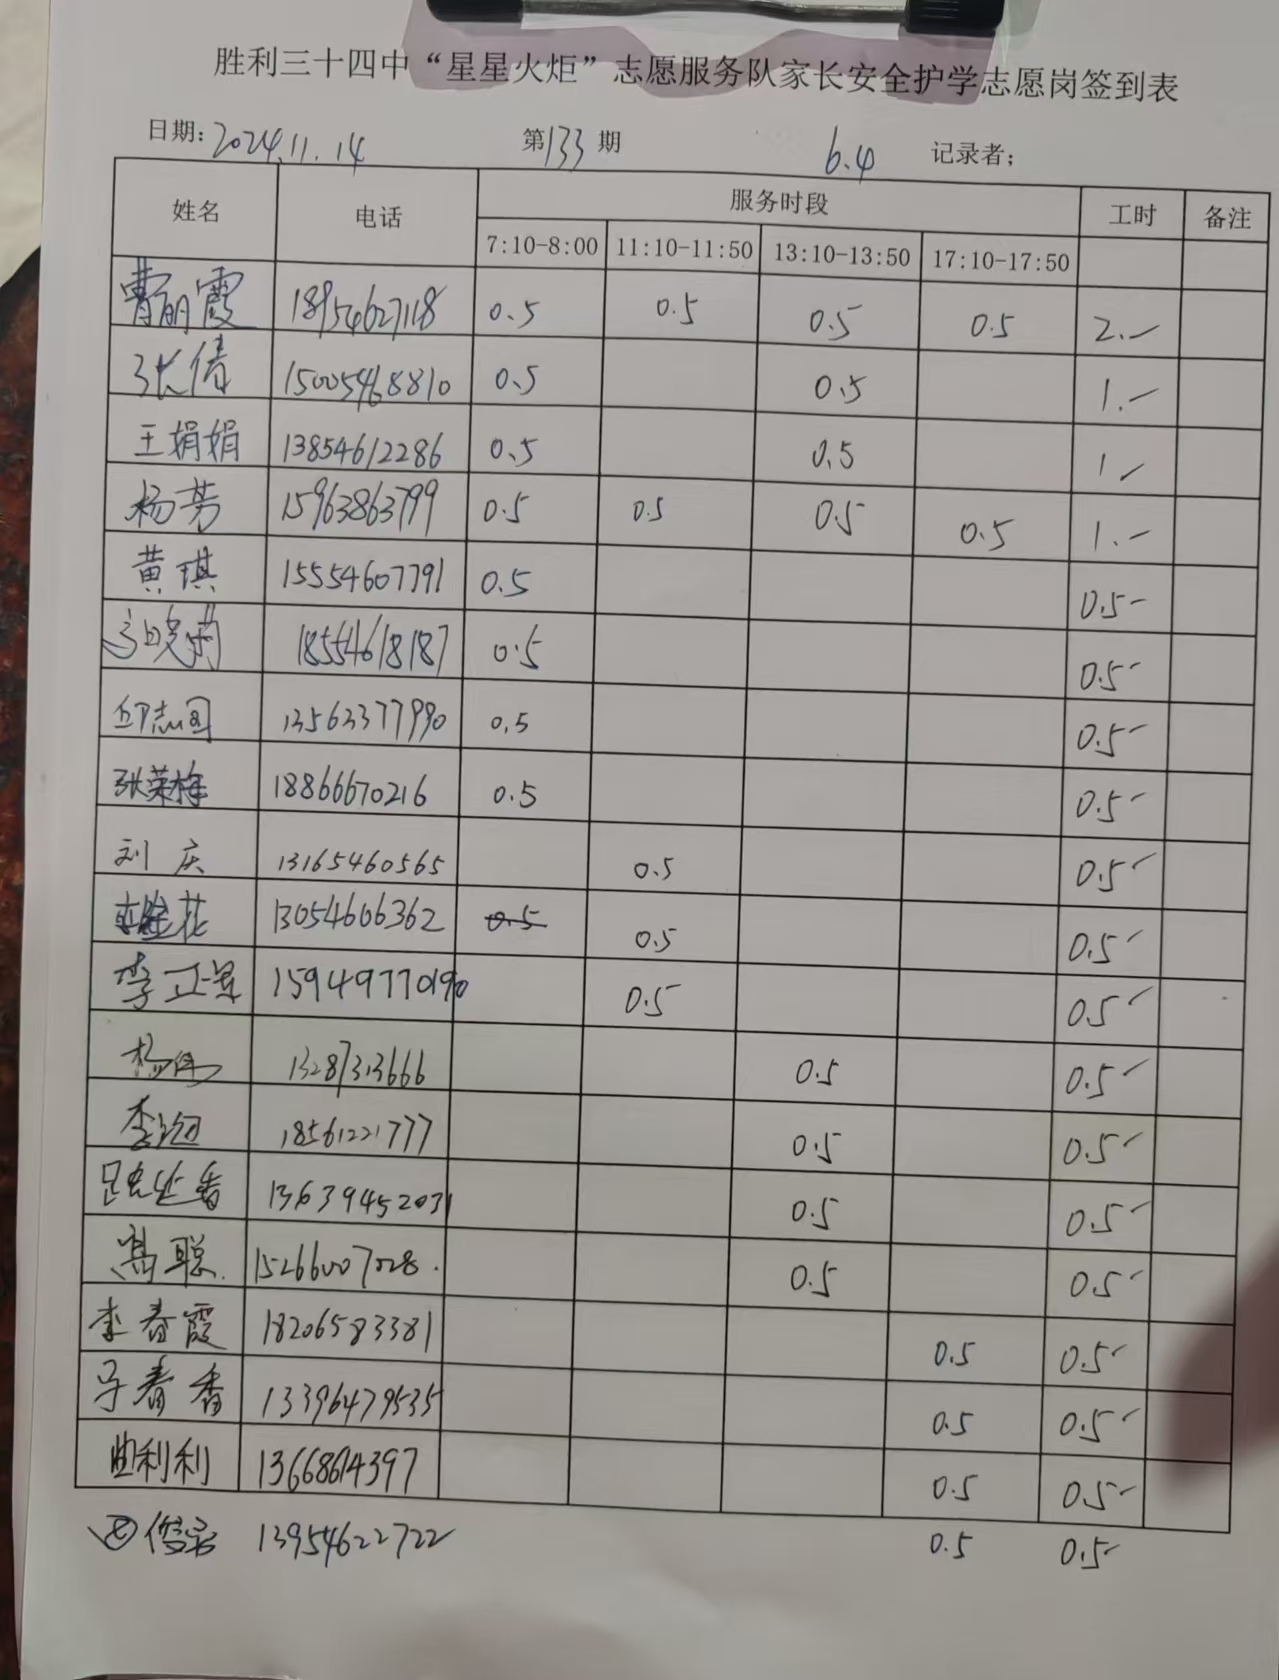 胜利三十四中“星星火炬”志愿服务队家长安全护学志愿岗签到表
日期: 2024.11.14 第133期 6.4 记录者;
姓名 电话 服务时段 工时 备注
7:10-8:00 11:10-11:50 13:10-13:50 17:10-17:50
曹丽霞 18954627118 0.5 0.5 0.5 0.5 2.
张倩 15005468810 0.5 0.5 1.
王娟娟 13854612286 0.5 0.5 1
杨芳 15963863799 0.5 0.5 0.5 0.5 1.
黄琪 15554607791 0.5 0.5
18554618187 0.5 0.5
邱志国 13563377990 0.5 0.5
张荣梅 18866670216 0.5 0.5
刘庆 13165460565 0.5 0.5
花 13054606362 0.5 0.5 0.5
李正星 15949770190 0.5 0.5
杨伟 13287313666 0.5 0.5
李 18561221777 0.5 0.5
香 13639452031 0.5 0.5
高聪 15266007028 0.5 0.5
李春霞 18206583381 0.5 0.5
于春香 13396479535 0.5 0.5
曲利利 13668614397 0.5 0.5
13954622722 0.5 0.5